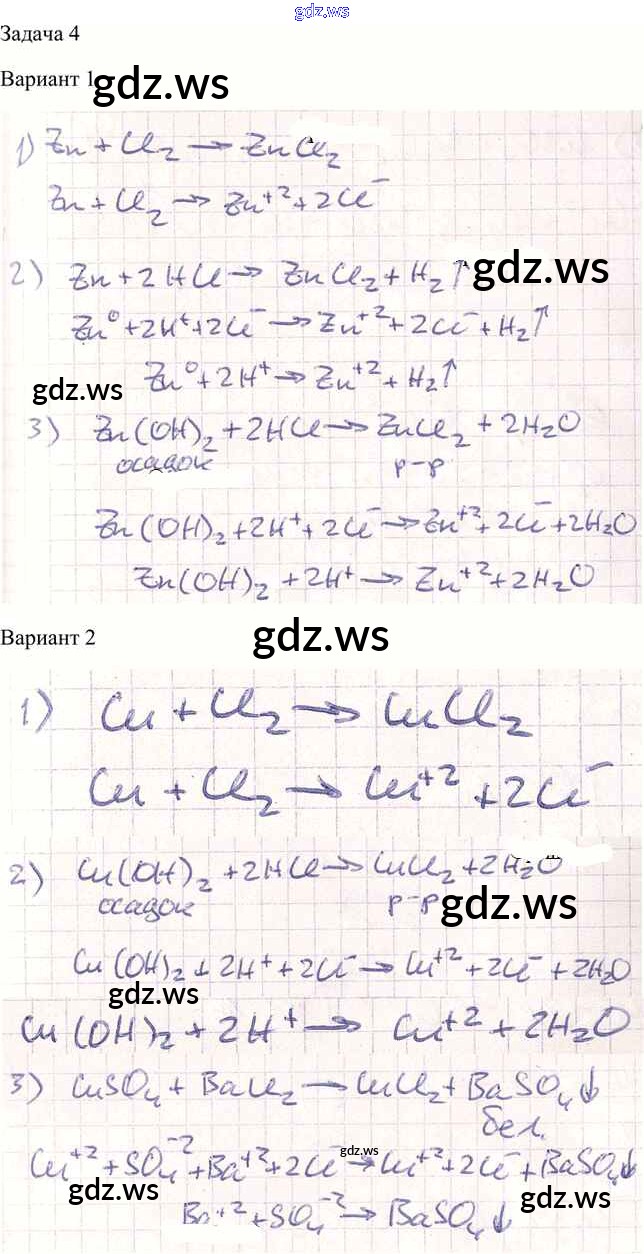 gdz.ws
Задача 4
Вариант 1
gdz.ws
1) Zn + Cl₂ → ZnCl₂
Zn + Cl₂ → Zn⁺² + 2Cl⁻
2) Zn + 2HCl → ZnCl₂ + H₂↑
gdz.ws
Zn⁰ + 2H⁺ + 2Cl⁻ → Zn⁺² + 2Cl⁻ + H₂↑
Zn⁰ + 2H⁺ → Zn⁺² + H₂↑
gdz.ws
3) Zn(OH)₂ + 2HCl → ZnCl₂ + 2H₂O
осадок р-р
Zn(OH)₂ + 2H⁺ + 2Cl⁻ → Zn⁺² + 2Cl⁻ + 2H₂O
Zn(OH)₂ + 2H⁺ → Zn⁺² + 2H₂O
Вариант 2
gdz.ws
1) Cu + Cl₂ → CuCl₂
Cu + Cl₂ → Cu⁺² + 2Cl⁻
2) Cu(OH)₂ + 2HCl → CuCl₂ + 2H₂O
осадок р-р
gdz.ws
Cu(OH)₂ + 2H⁺ + 2Cl⁻ → Cu⁺² + 2Cl⁻ + 2H₂O
gdz.ws
Cu(OH)₂ + 2H⁺ → Cu⁺² + 2H₂O
3) CuSO₄ + BaCl₂ → CuCl₂ + BaSO₄↓
бел.
gdz.ws
Cu⁺² + SO₄⁻² + Ba⁺² + 2Cl⁻ → Cu⁺² + 2Cl⁻ + BaSO₄↓
gdz.ws
gdz.ws
Ba⁺² + SO₄⁻² → BaSO₄↓